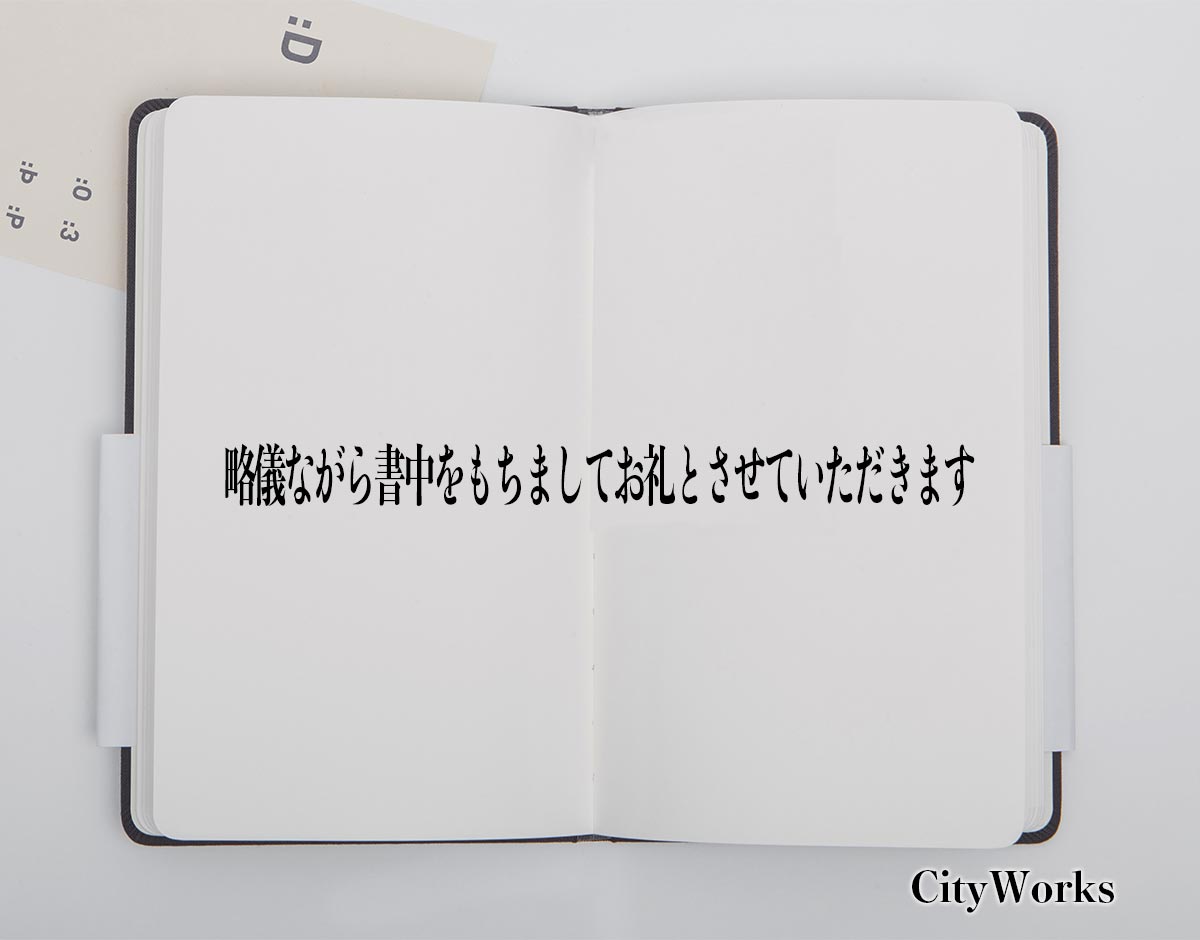 :D
:P
:O
:P
:3
略儀ながら書中をもちましてお礼とさせていただきます
CityWorks